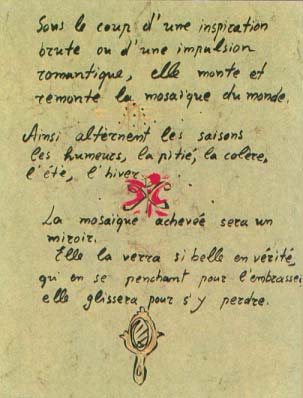 Sous le coup d'une inspiration
brute ou d'une impulsion
romantique, elle monte et
remonte la mosaïque du monde.
Ainsi alternent les saisons
les humeurs, la pitié, la colère,
l'été, l'hiver.
La mosaique acheveé sera un
miroir.
Elle la verra si belle en vérité,
qu'en se penchant pour l'embrasser
elle glissera pour s'y perdre.